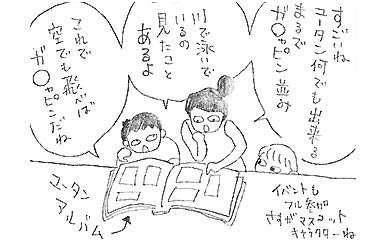 すごいね
ユータン何でも出来る
まるで
ガ○ャピン並み
川で泳いで
いるの
見たこと
あるよ
これで
空でも飛べば
ガ○ャピンだね
ユータン
アルバム
イベントも
フル参加
さすがマスコット
キャラクターね